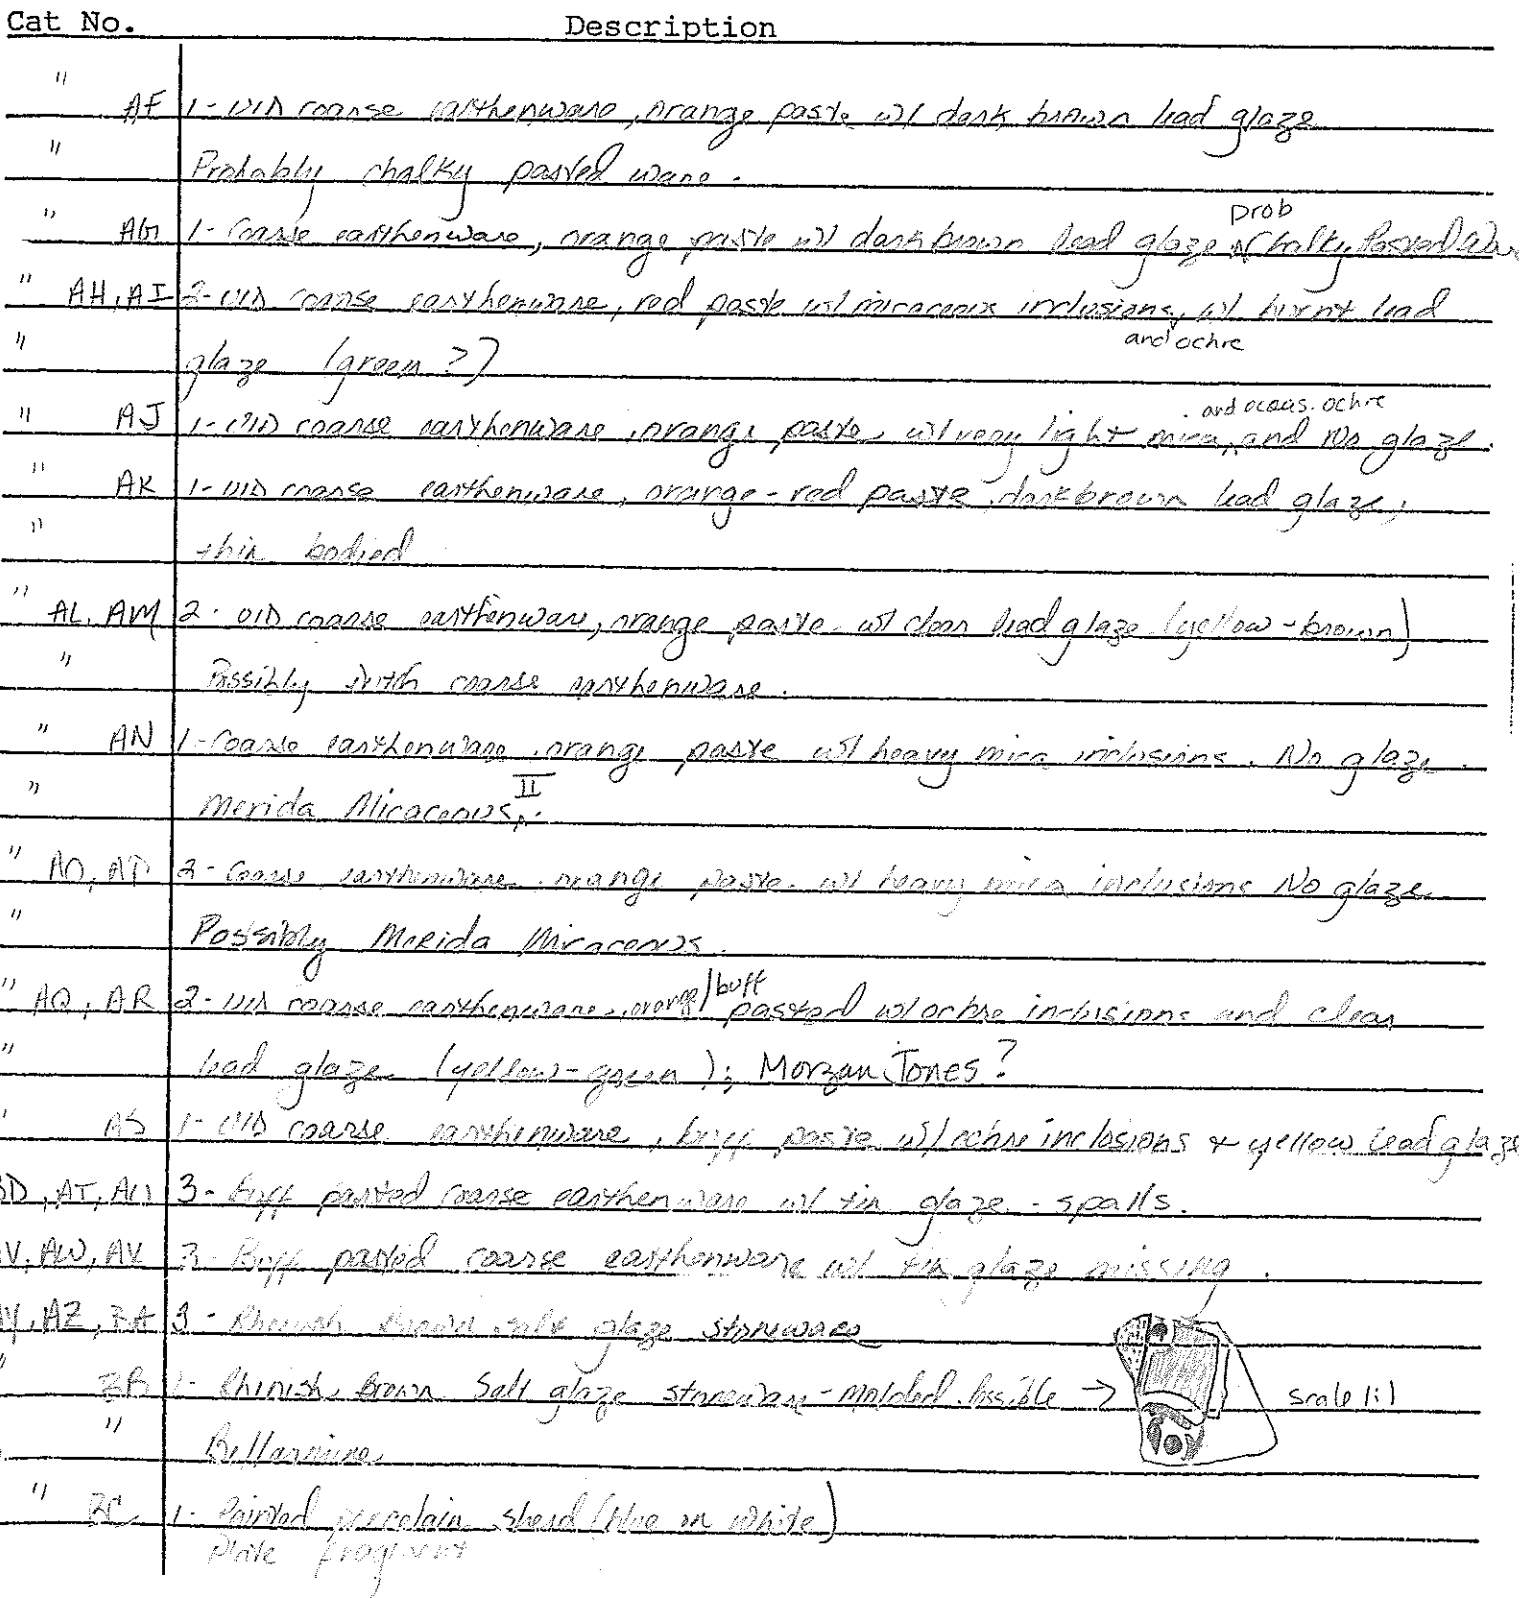 Cat No. Description
" AF 1- UID coarse earthenware, orange paste w/ dark brown lead glaze
" Probably chalky pasted ware.
" AG 1- Coarse earthenware, orange paste w/ dark brown lead glaze prob Chalky Pasted War
" AH, AI 2- UID coarse earthenware, red paste w/ micaceous inclusions, and ochre w/ burnt lead
" glaze (green?)
" AJ 1- UID coarse earthenware, orange paste, w/ very light mica, and occas. ochre and No glaze.
" AK 1- UID coarse earthenware, orange-red paste, dark brown lead glaze;
" thin bodied
" AL, AM 2- UID coarse earthenware, orange paste w/ clear lead glaze (yellow-brown)
" Possibly coarse earthenware.
" AN 1- Coarse earthenware, orange paste w/ heavy mica inclusions. No glaze.
" Merida Micaceous, II.
" AO, AP 2- Coarse earthenware, orange paste. w/ heavy mica inclusions No glaze
" Possibly Merida Micaceous.
" AQ, AR 2- UID coarse earthenware, orange/buff pasted w/ ochre inclusions and clear
" lead glaze (yellow-green); Morgan Jones?
" AS 1- UID coarse earthenware, buff paste w/ ochre inclusions + yellow lead glaze
BD, AT, AU 3- Buff pasted coarse earthenware w/ tin glaze - spalls.
AV, AW, AX 3- Buff pasted coarse earthenware w/ tin glaze missing.
AY, AZ, BA 3- Rhenish Brown salt glaze stoneware
" BB 1- Rhinish Brown Salt glaze stoneware - Molded. Possible → scale 1:1
" Bellarmine
" BC 1- Painted porcelain sherd (blue on white)
Plate fragment